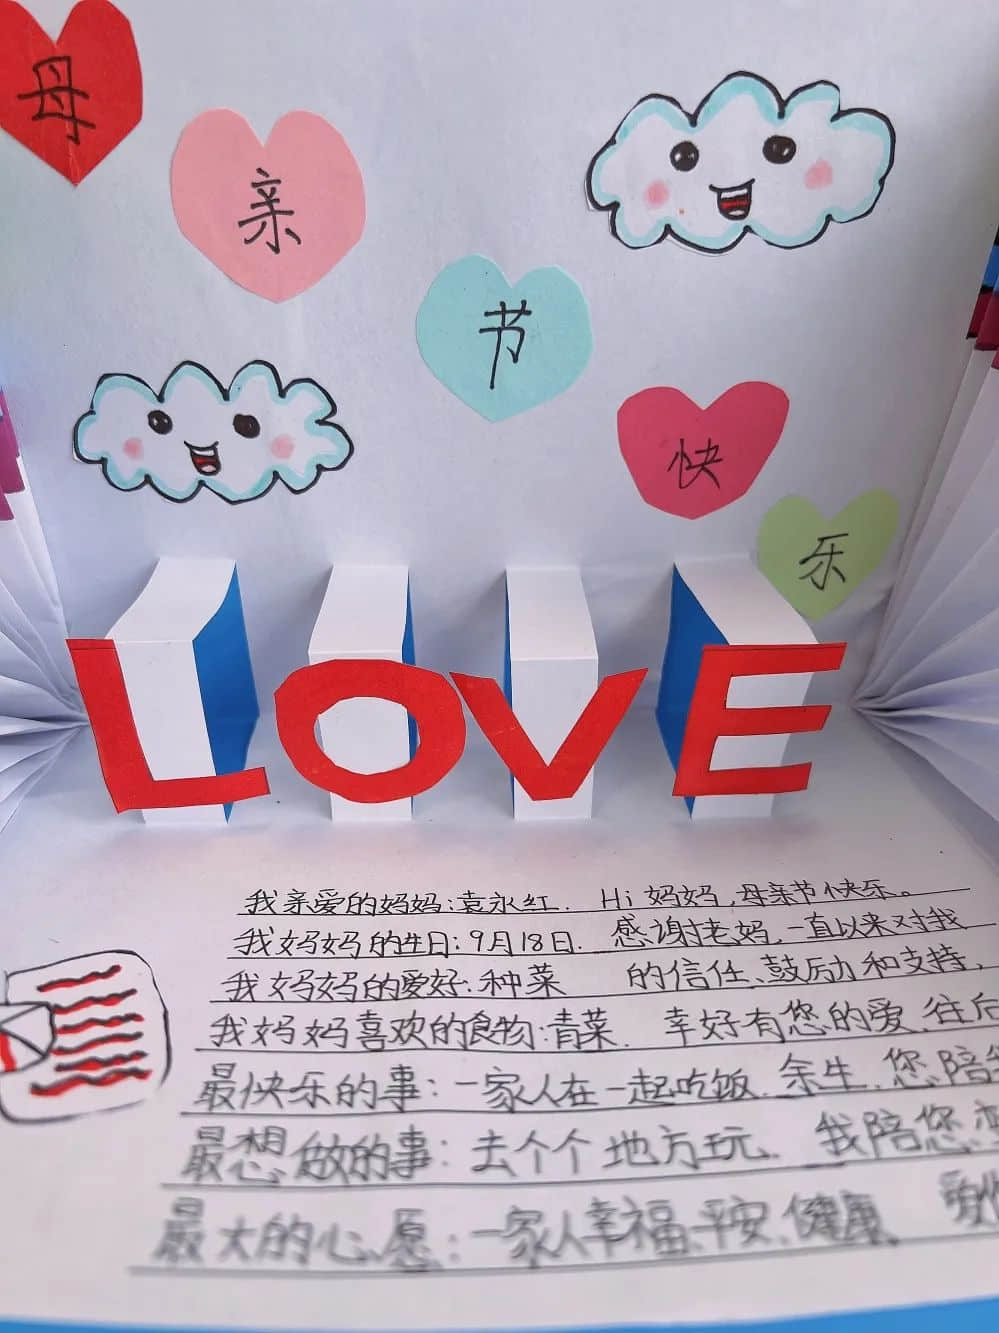 母
亲
节
快
乐
LOVE
我亲爱的妈妈:袁永红. Hi 妈妈,母亲节快乐。
我妈妈的生日:9月18日. 感谢老妈,一直以来对我
我妈妈的爱好:种菜 的信任、鼓励和支持,
我妈妈喜欢的食物:青菜. 幸好有您的爱,往后
最快乐的事:一家人在一起吃饭. 余生,您陪
最想做的事:去个个地方玩. 我陪您
最大的心愿:一家人幸福、平安、健康